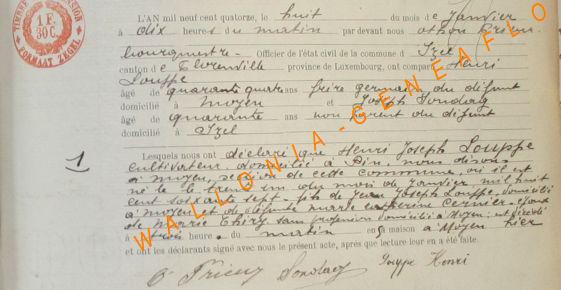 TIMBRE
1 F.
30 C.
FORMAAT ZEGEL
L'AN mil neuf cent quatorze, le huit du mois de Janvier
à dix heures du matin par devant nous
bourgmestre - Officier de l'état civil de la commune d Izel
canton de Florenville province de Luxembourg, ont comparu Henri
Louppe
âgé de quarante quatre ans frère germain du défunt
domicilié à Moyen et Joseph Sondag
âgé de quarante ans non parent du défunt
domicilié à Izel
1
Lesquels nous ont déclaré que Henri Joseph Louppe
cultivateur, domicilié à Pin, nous disons
à Moyen, section de cette commune, où il est
né le trente un du mois de Janvier mil huit
cent soixante sept - fils de Jean Joseph Louppe, domicilié
à Moyen et de défunte Marie Catherine
de Marie Thiry sans profession domiciliée à Moyen, est décédé
à trois heures du matin en sa maison à Moyen hier
et ont les déclarants signé avec nous le présent acte, après que lecture leur en a été faite.
Sondag Louppe Henri
WALLONIA-GENEAFLO